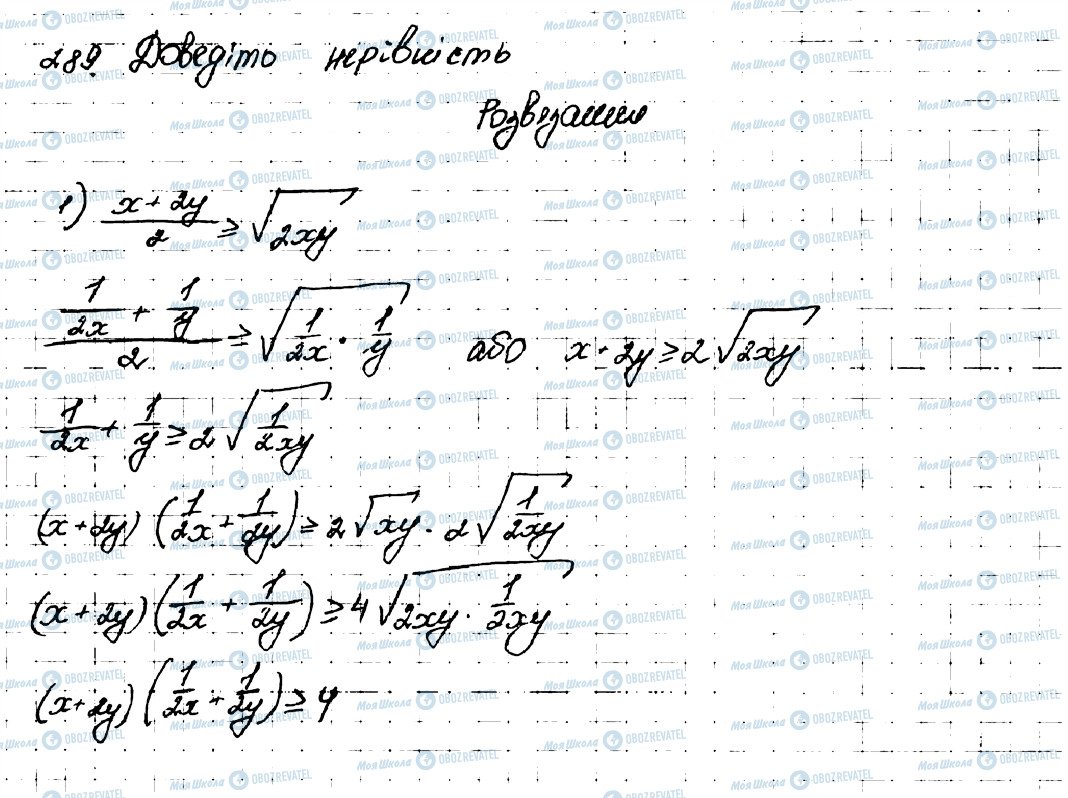 289 Доведіто нерівність
Розвезання
1) (x + 2y)/2 ≥ √(2xy)
(1/(2x) + 1/y)/2 ≥ √(1/(2x) · 1/y) або x + 2y ≥ 2√(2xy)
1/(2x) + 1/y ≥ 2√(1/(2xy))
(x + 2y) (1/(2x) + 1/(2y)) ≥ 2√(xy) · 2√(1/(2xy))
(x + 2y) (1/(2x) + 1/(2y)) ≥ 4√(2xy · 1/(2xy))
(x + 2y) (1/(2x) + 1/(2y)) ≥ 4